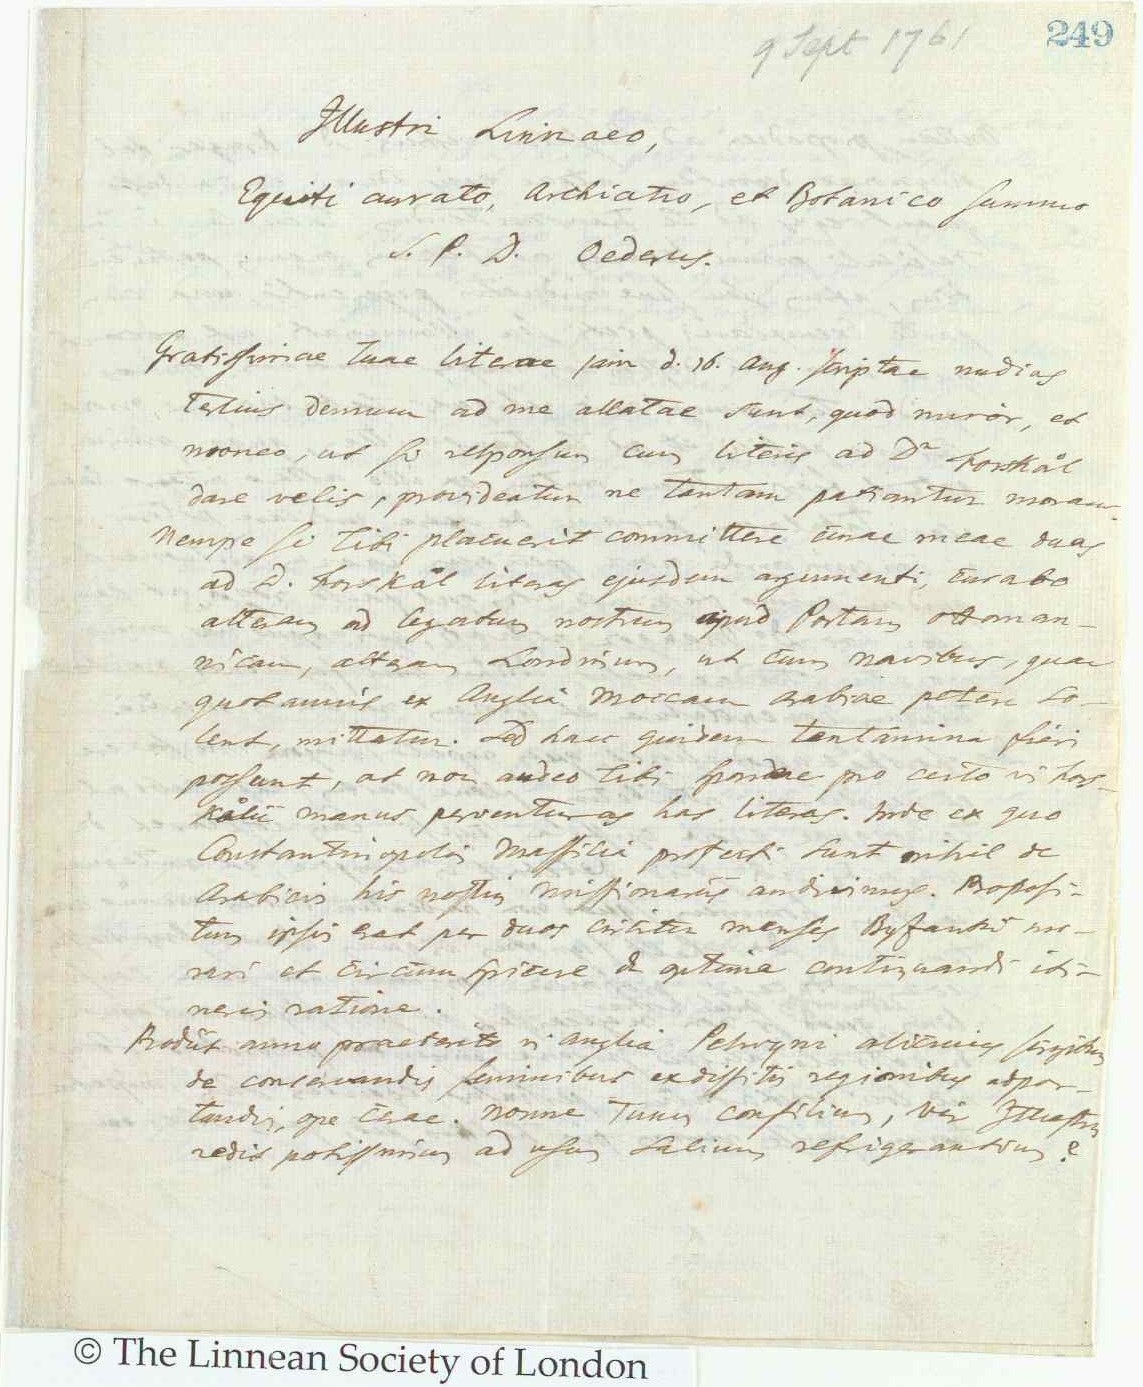 9 Sept 1761
249
Illustri Linnaeo,
Equiti aurato, Archiatro, et Botanico summo
S. P. D. Oederus.
Gratissimae tuae literae jam d. 16. Aug. scriptae nudius
tertius demum ad me allatae sunt, quod miror, et
moneo, ut si responsum cum literis ad Dr Forskål
dare velis, provideatur ne tantam patiantur moram.
Nempe si Tibi placuerit committere curae meae duas
ad D. Forskål literas ejusdem argumenti, curabo
alteram ad legatum nostrum apud Portam ottoman-
nicam, alteram Londinum, ut cum navibus, quae
quotannis ex Anglia Moccam Arabiae petere so-
lent, mittatur. Sed haec quidem tentamina fieri
possunt, at non audeo Tibi spondere pro certo in Fors-
kålii manus perventuras has literas. Inde ex quo
Constantinopolin Massilia profecti sunt nihil de
Arabicis his nostris missionariis audivimus. Proposi-
tum ipsis erat per duos circiter menses Byzantii mo-
rari et circumspicere de optima continuandi iti-
neris ratione.
Prodiit anno praeterito in Anglia Pehryni alicujus scriptum
de conservandis seminibus ex dissitis regionibus adpor-
tandis, ope cerae. Nonne Tuum consilium, Vir Illustris
redit potissimum ad usum salium refrigerantium?
© The Linnean Society of London